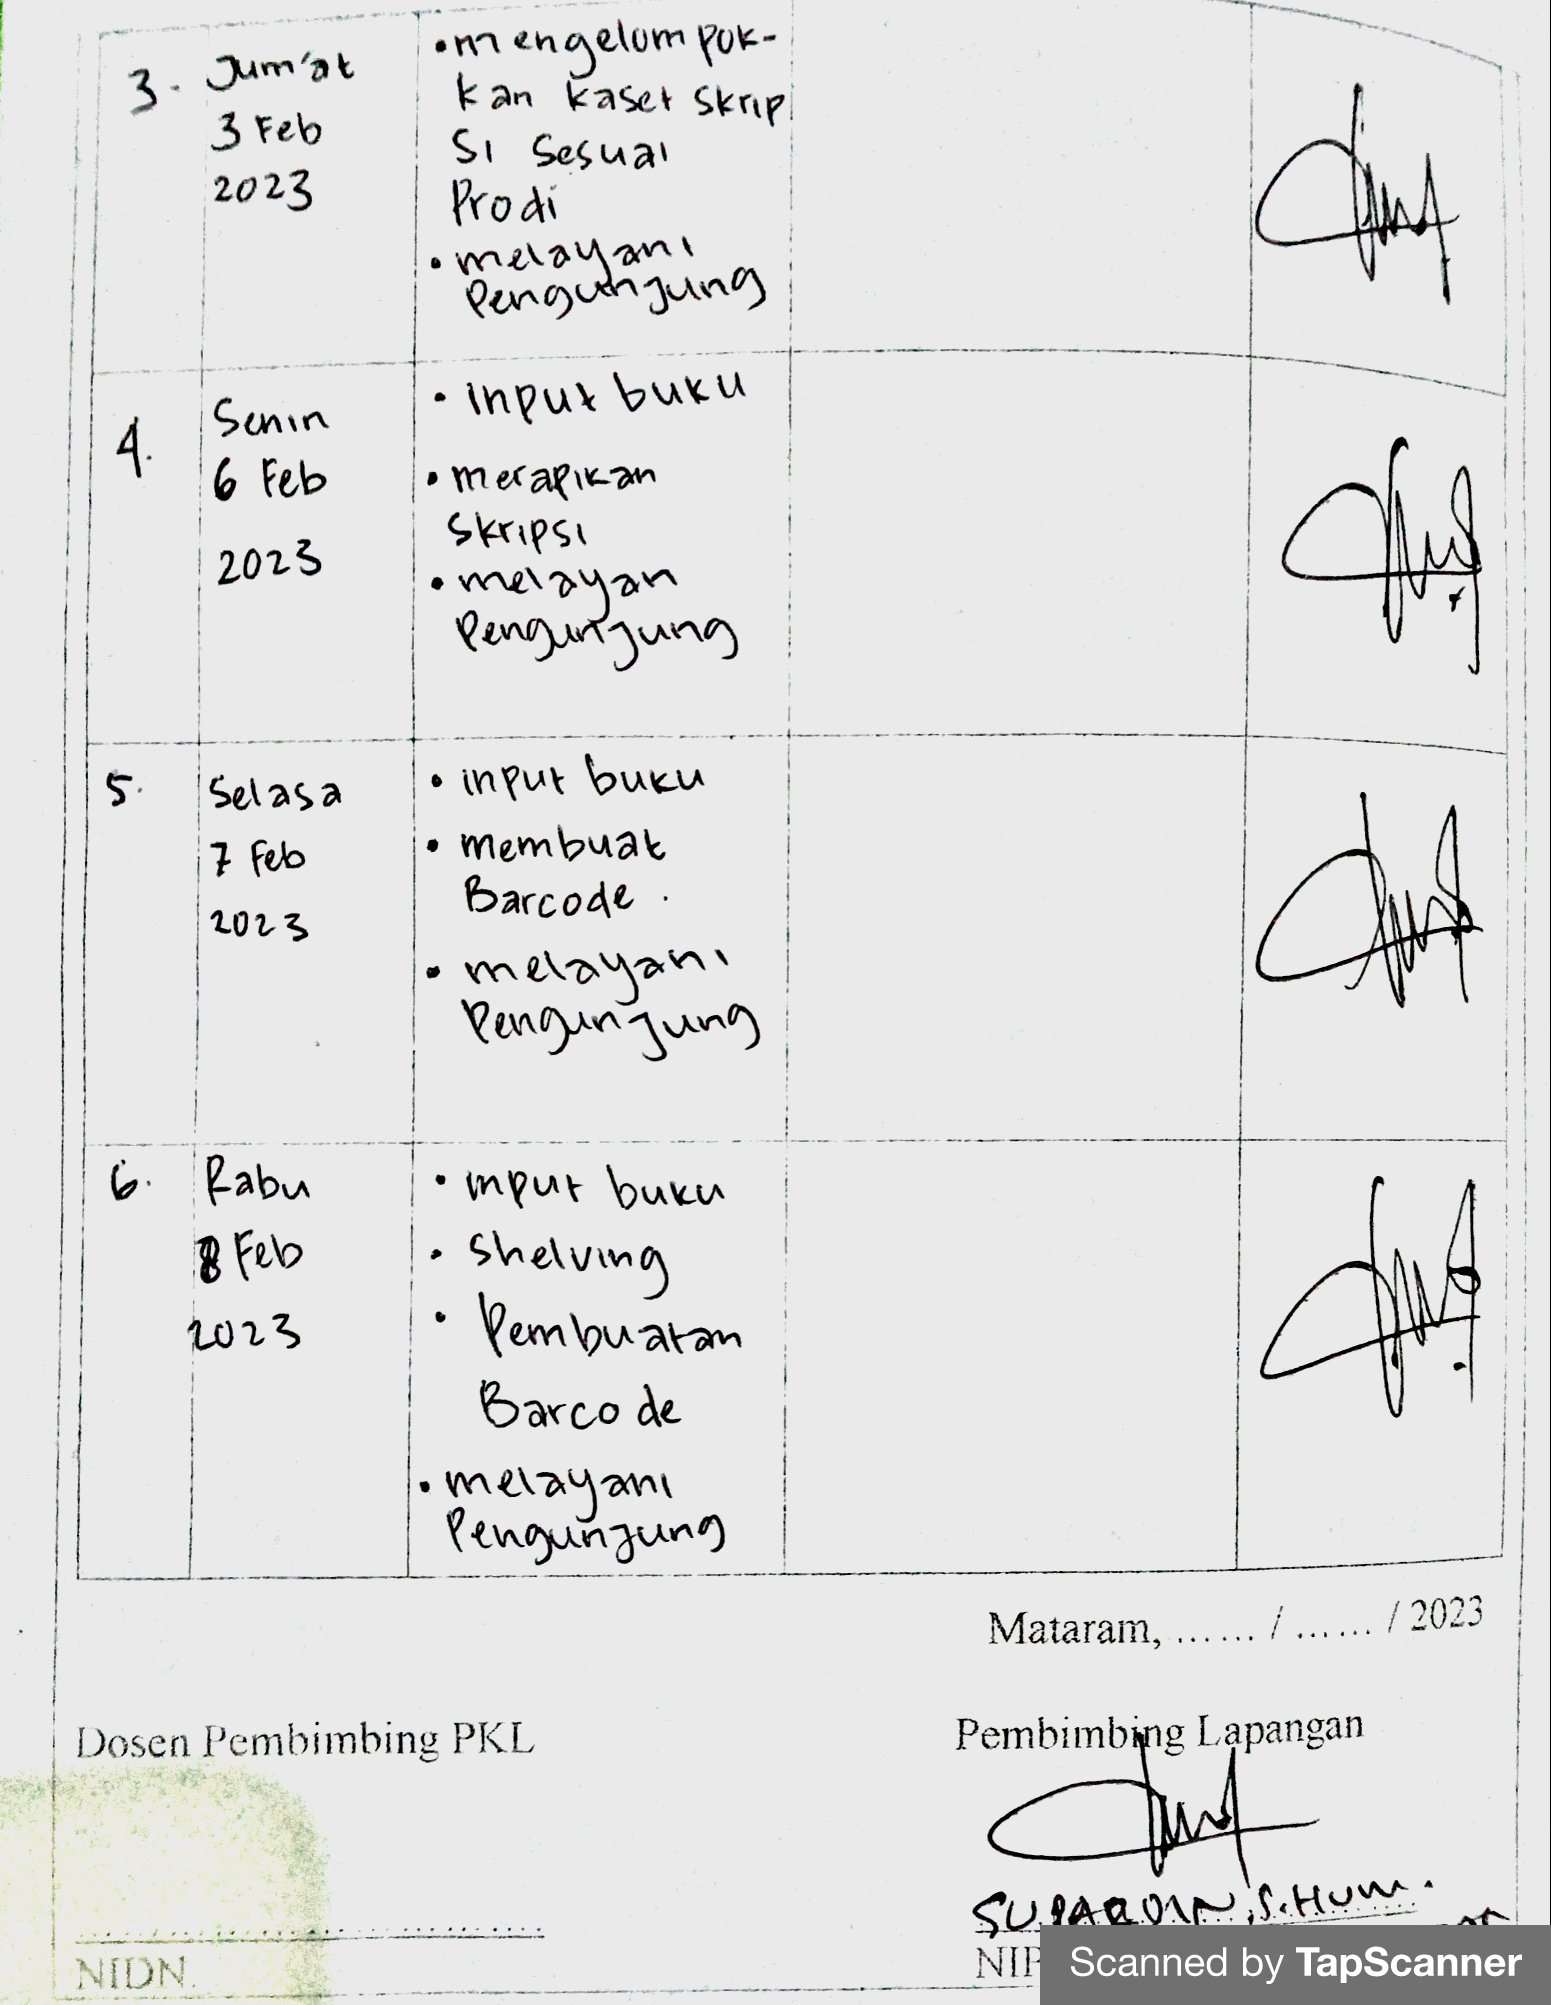 3. Jum'at
3 Feb
2023
• mengelompok-
kan kaset skrip
si sesuai
Prodi
• melayani
Pengunjung
4. Senin
6 Feb
2023
• input buku
• merapikan
skripsi
• melayan
Pengunjung
5. Selasa
7 Feb
2023
• input buku
• membuat
Barcode.
• melayani
Pengunjung
6. Rabu
8 Feb
2023
• input buku
• shelving
• Pembuatan
Barcode
• melayani
Pengunjung
Mataram, ...... / ...... / 2023
Dosen Pembimbing PKL
Pembimbing Lapangan
SUPARDIN, S.HUM.
NIDN.
NIP
Scanned by TapScanner